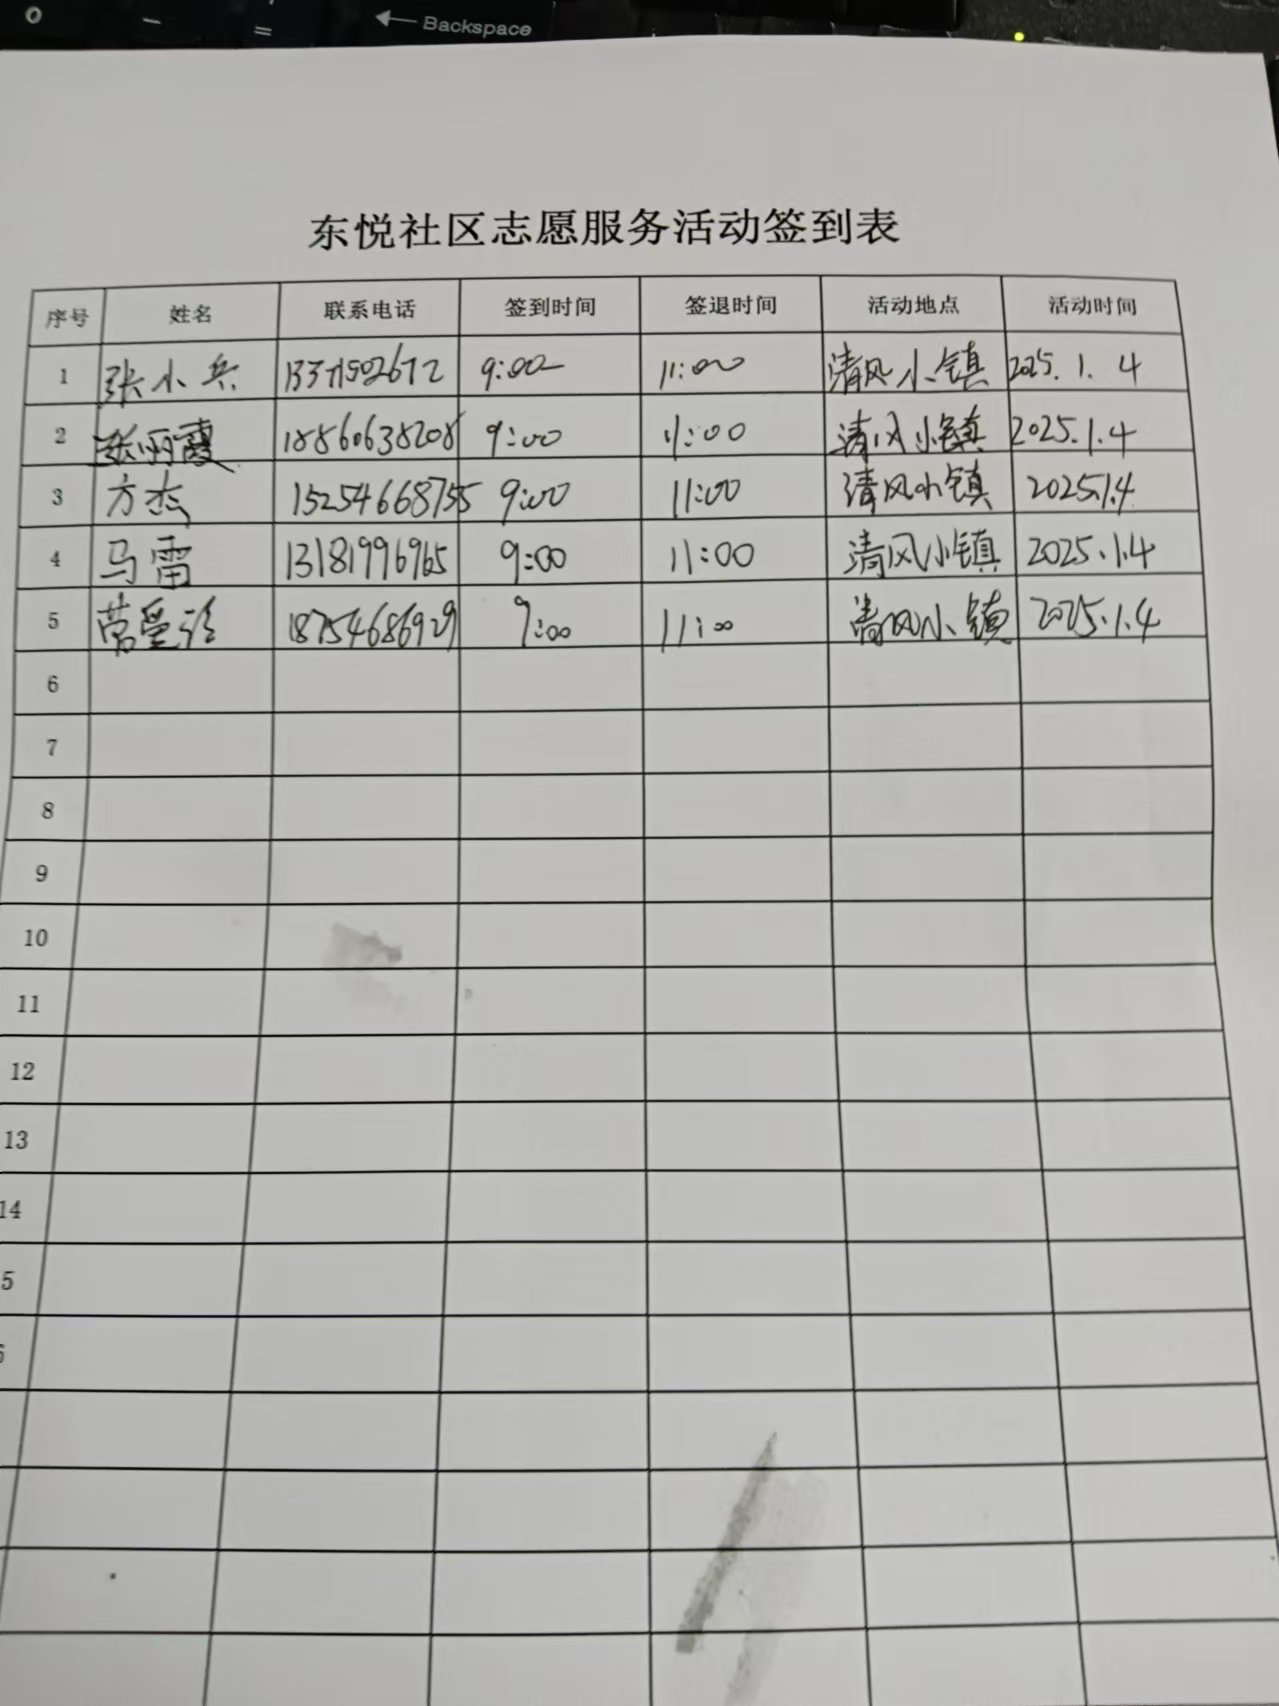 Backspace
东悦社区志愿服务活动签到表
序号 姓名 联系电话 签到时间 签退时间 活动地点 活动时间
1 张小兵 13371502672 9:00 11:00 清风小镇 2025.1.4
2 张丽霞 18860638208 9:00 11:00 清风小镇 2025.1.4
3 方杰 15254668755 9:00 11:00 清风小镇 2025.1.4
4 马雷 13181996965 9:00 11:00 清风小镇 2025.1.4
5 18754686929 9:00 11:00 清风小镇 2025.1.4
6
7
8
9
10
11
12
13
14
5